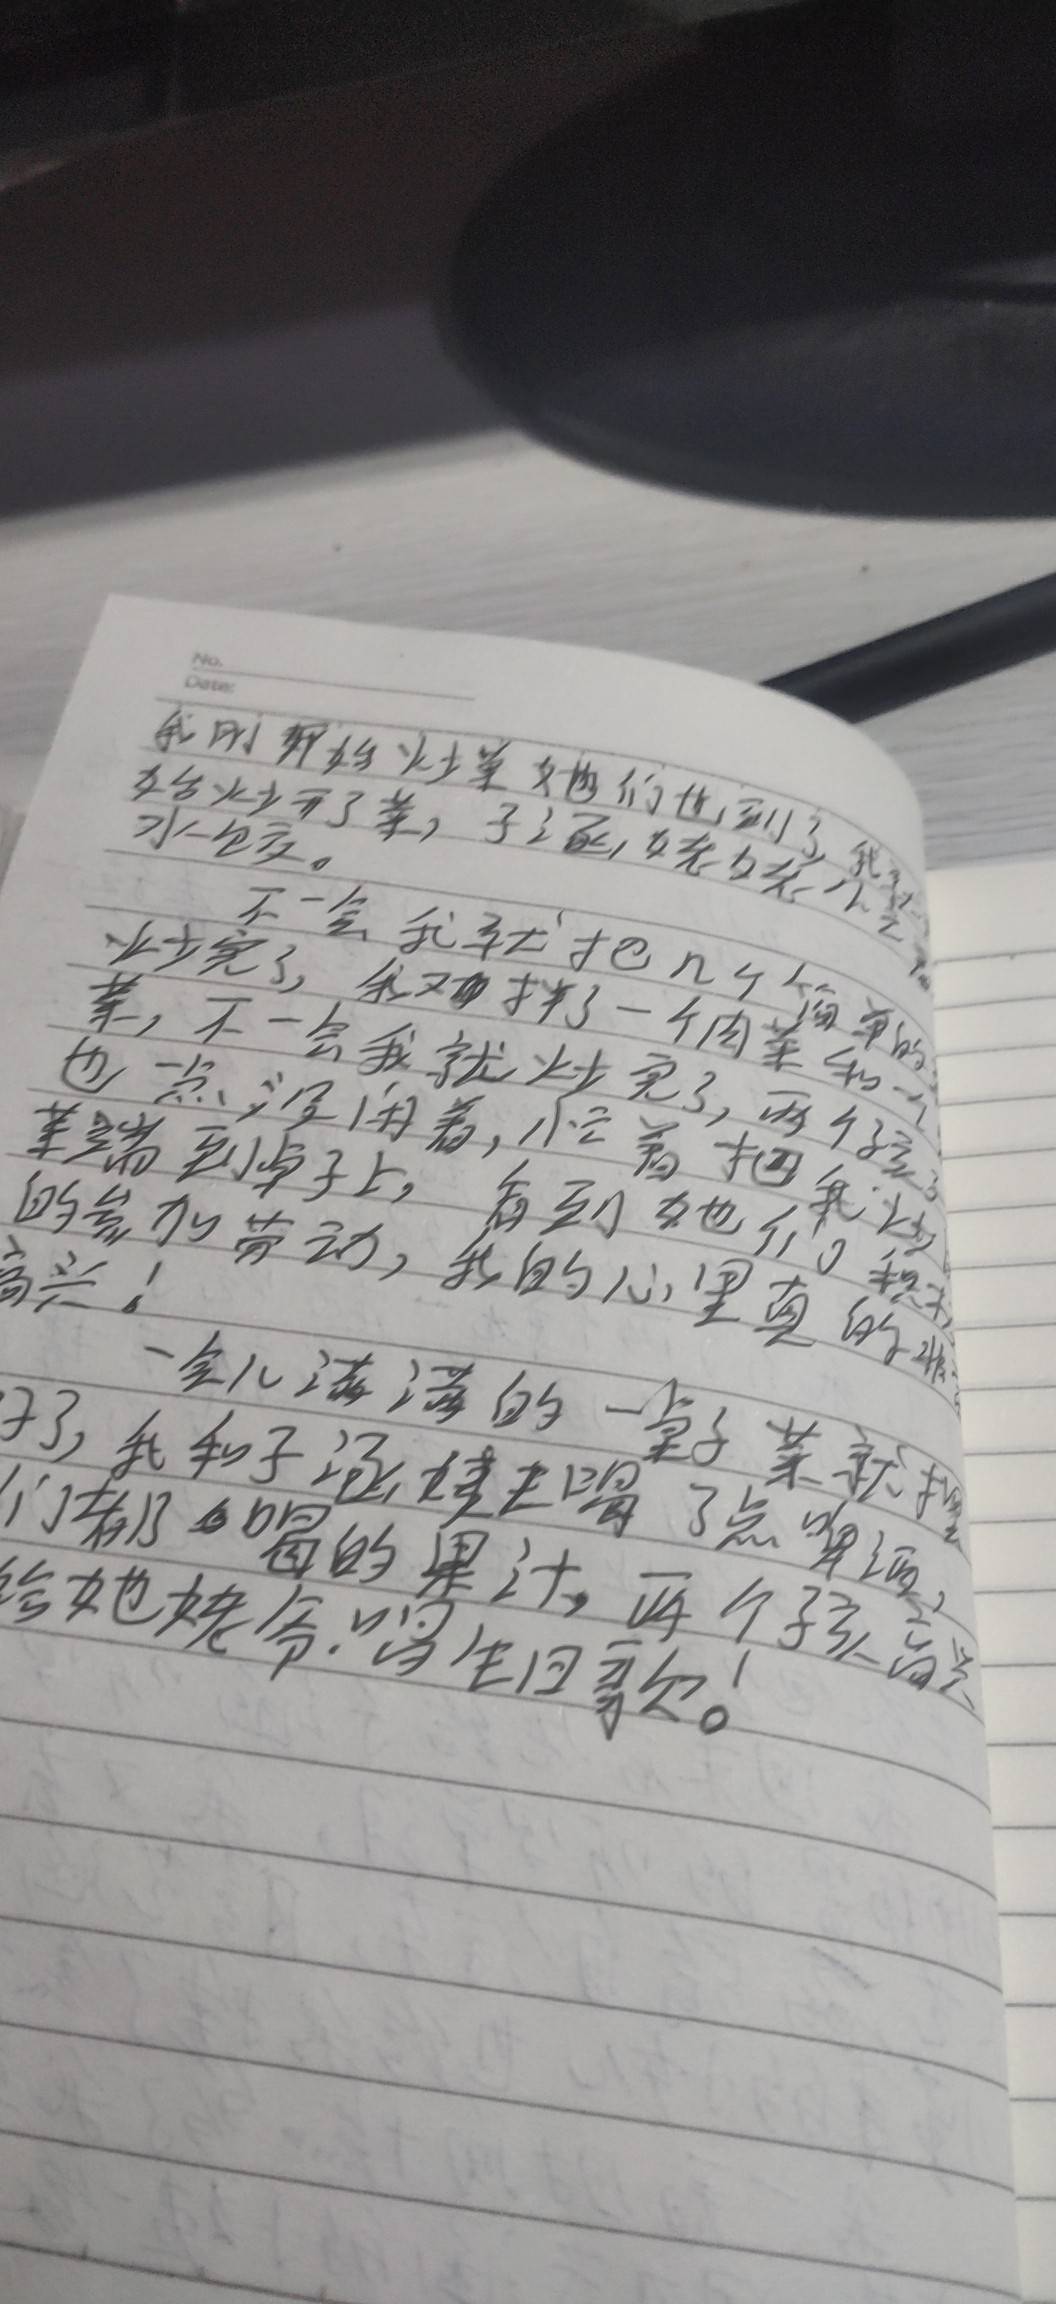 No.
Date:
我刚开始炒菜她们也到了,我
始炒开了菜,子涵,姥姥
水饺。
不一会我就把几个简单的
炒完了,我又拌了一个肉菜和一
菜,不一会我就炒完了,两个孩子
也一点没闲着,忙着把我炒
菜端到桌子上,看到她们积
的参加劳动,我的心里真的非
高兴!
一会儿满满的一桌子菜就
好了,我和子涵姥老喝了点啤酒,
们都喝的果汁。两个孩高兴
给她姥爷唱生日歌。!